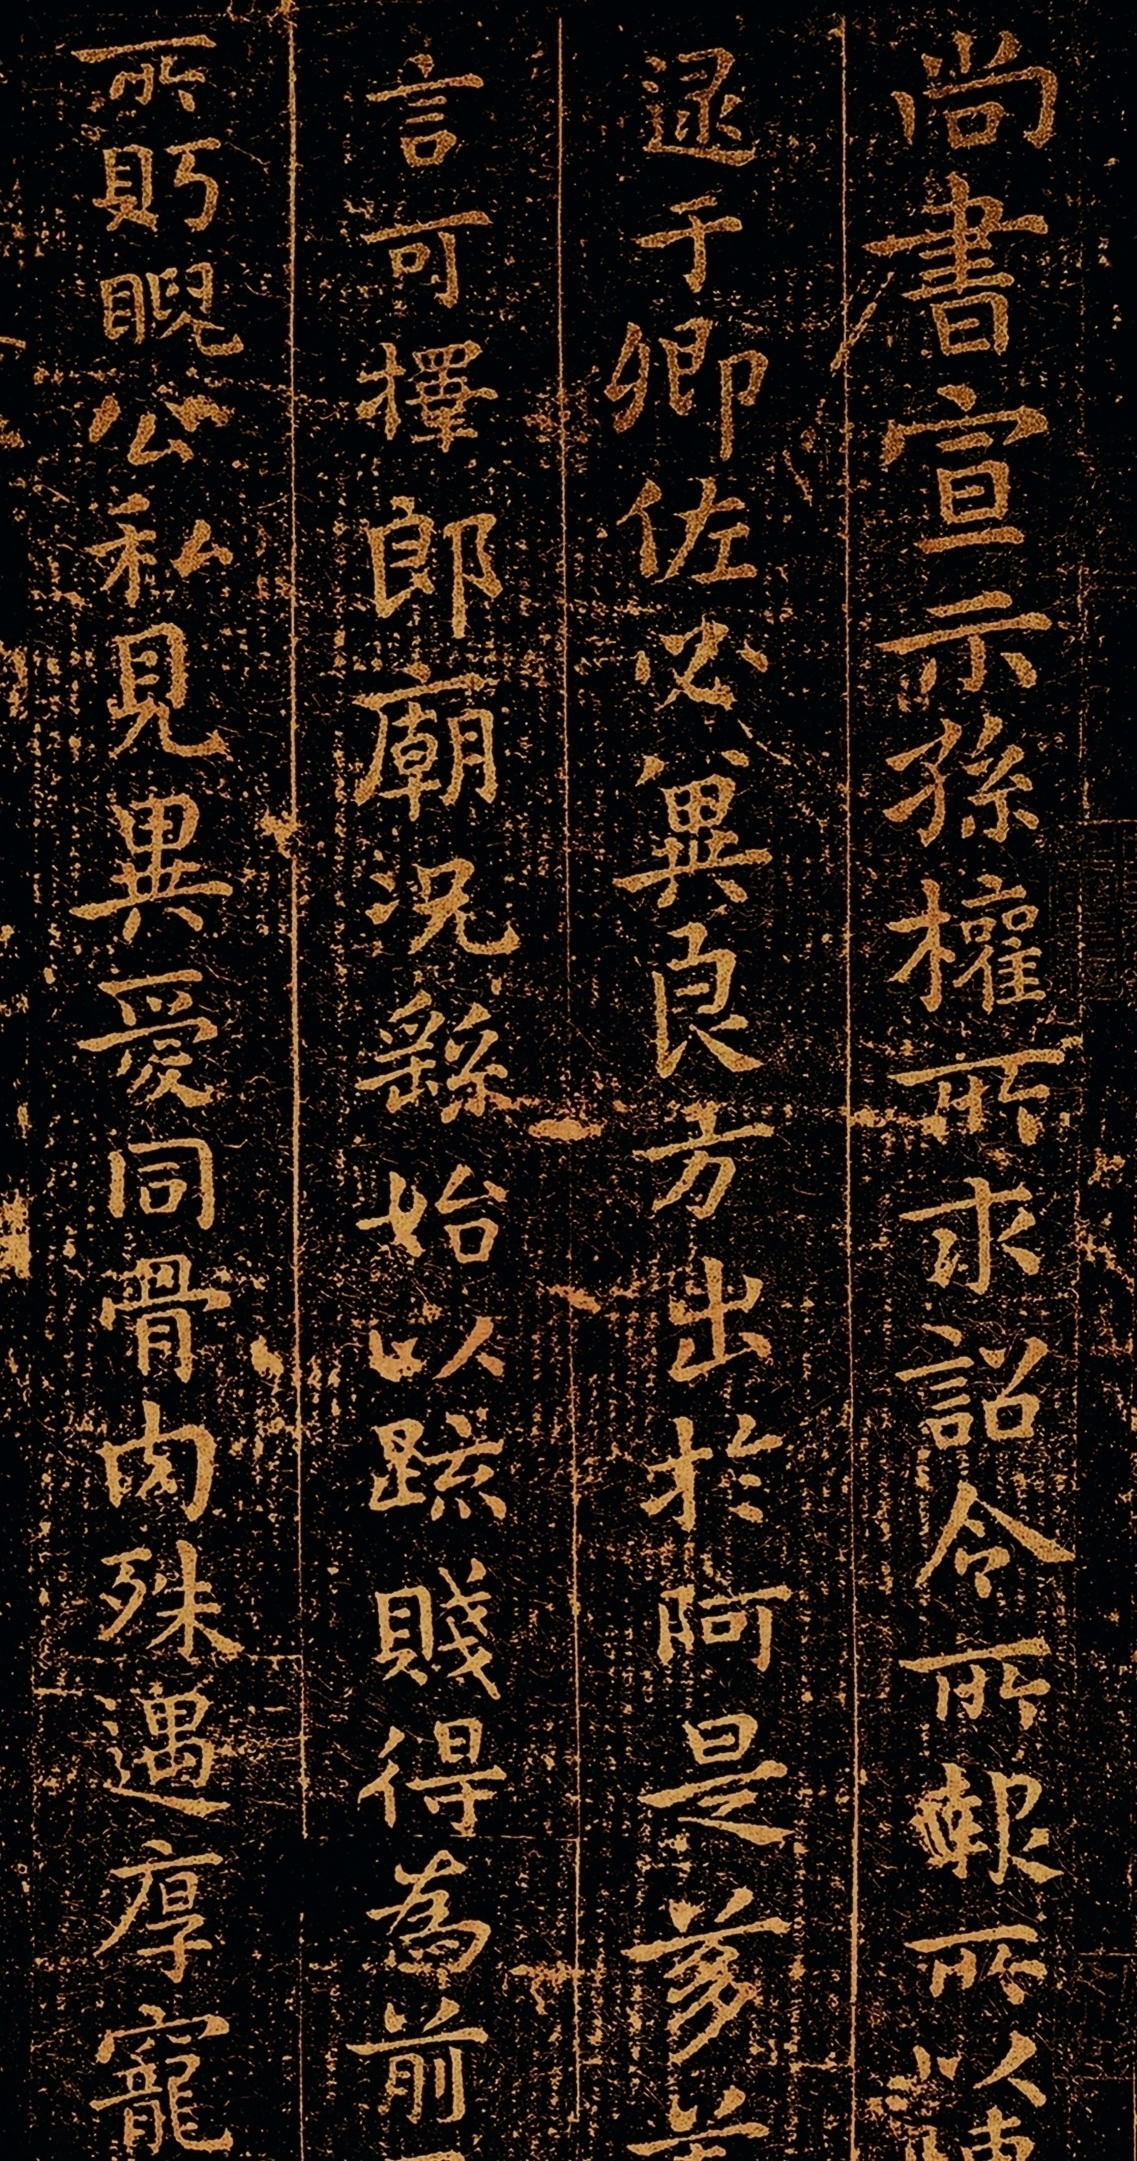 尚書宣示孫權所求詔令所報所以
逮于卿佐必冀良方出於阿是芻
言可擇郎廟況繇始以疏賤得為前
所眄睨公私見異愛同骨肉殊遇厚寵